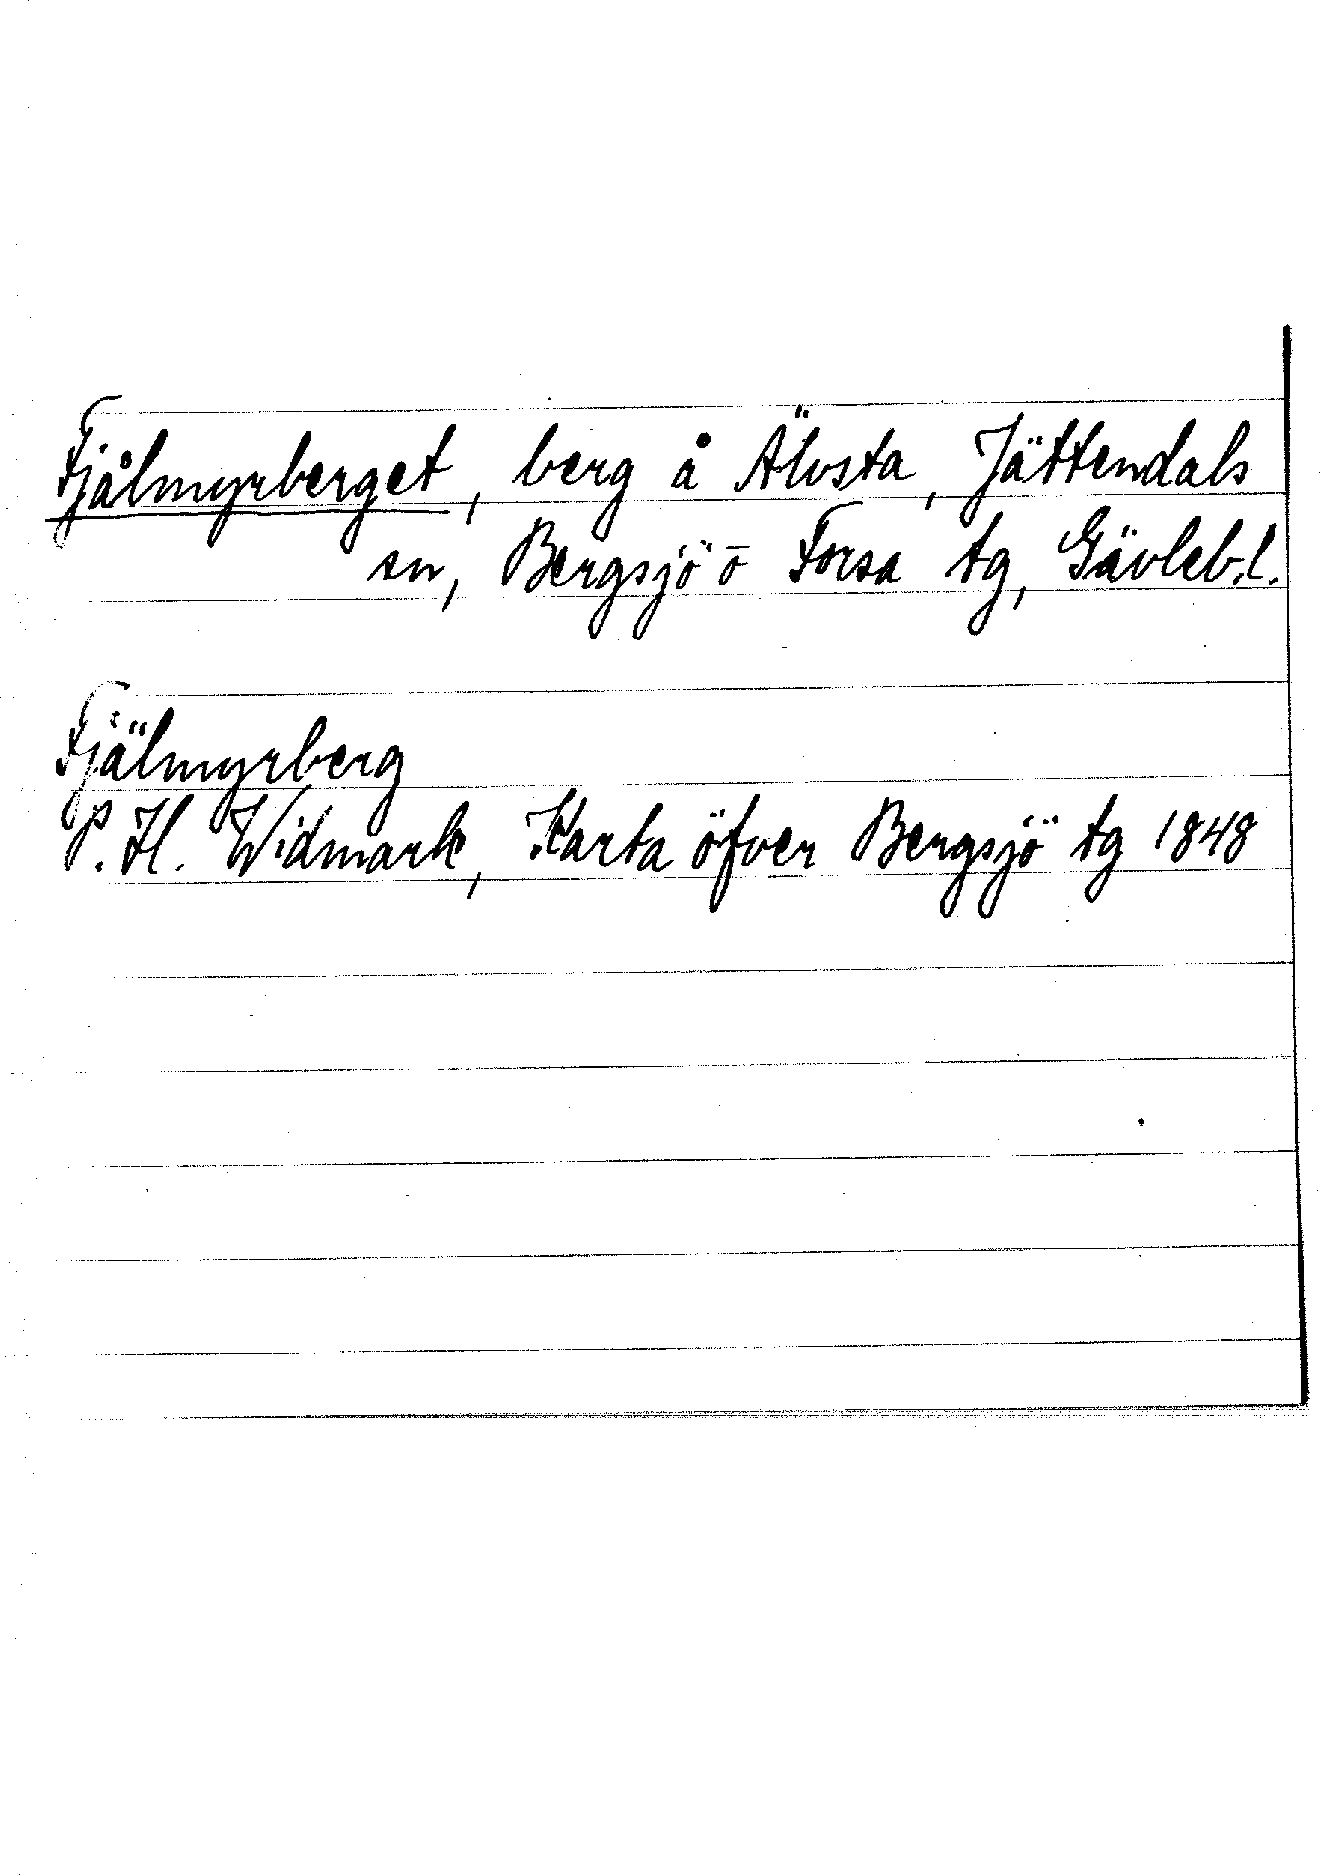 Fjålmyrberget, berg å Älvsta, Jättendals
sn, Bergsjö o Forsa tg, Gävleb.l.
Fjälmyrberg
P. H. Widmark, Karta öfver Bergsjö tg 1848